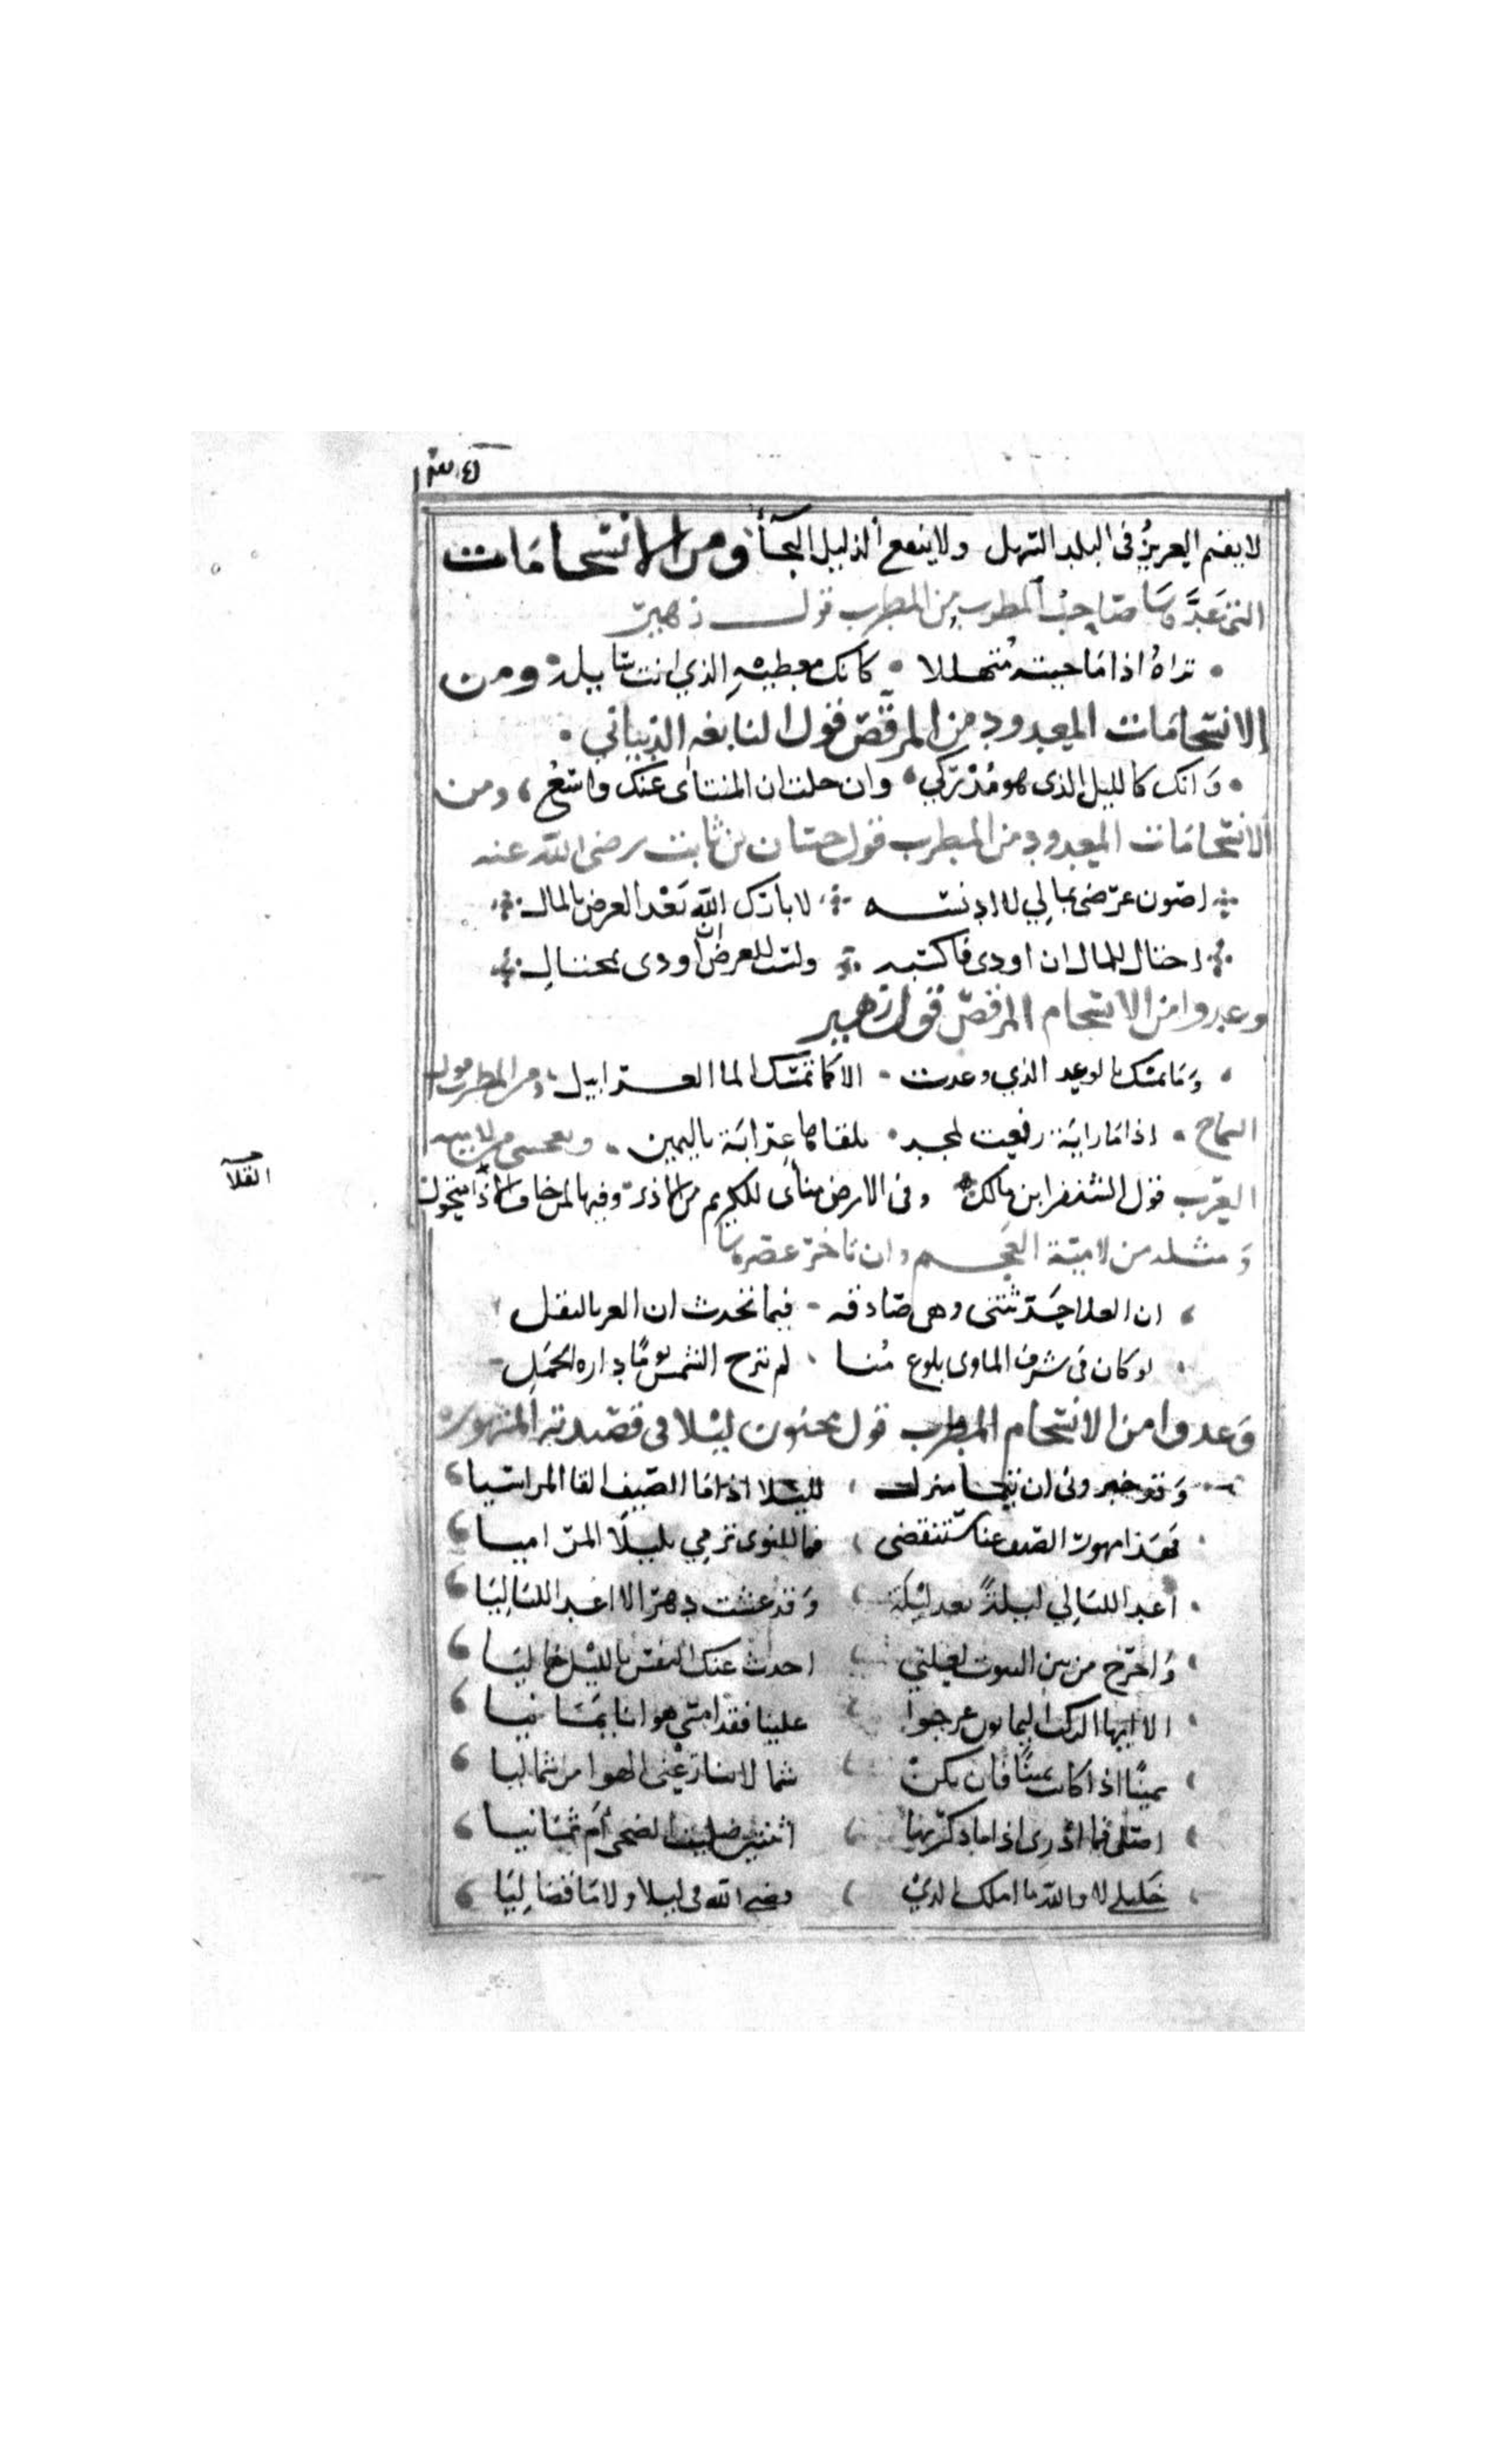 لا يقيم العزيز في البلد السهل ولا ينفع الذليل النجآء ومن الانسجامات
التي عدها صاحب المطرب من المطرب قول زهير
تراهُ اذا ما جيته متهللا • كانك معطيه الذي انت سايله ومن
الانسجامات المعدود من المرقص قول النابغه الذبياني •
• وَانك كالليل الذي هو مُدْرِكي • وان خلت ان المنتاى عنك واسعُ ، ومن
الانسجامات المعدود من المطرب قول حسان بن ثابت رضي الله عنه
اصون عرضي بمالي لا ادنسه لا بارك الله بَعْد العرض بالمال
احتال للمال ان اودى فاكسبه ولست للعرض ان اودى بمحتال
وعدوا من الانسجام المرقص قول زهير
وَمَا تمسك بالوعد الذي وعدت - الا كما تمسك الما الغرابيل ، ومن المطرب قول
الشماخ • اذا ما رايَة رفعت لمجد • تلقاها عرابَة باليمين •
العرب قول الشنفرا بن مالك وفى الارض مناى للكريم من الاذى وفيها لمن خاف الاذا متحول
القلا
وَمثله من لاميّة العجم وان تاخر عصرها
ان العلا حَدثتنى وهى صَادقه - فيما تحدث ان العز بالنقل
لو كان فى شرف الماوى بلوع مُنا ، لم تبرح الشمس يومًا دارة الحمَل
وَعدوا من الانسجام المطرب قول مجنون ليْلا في قصيدته المشهوره
وَقد خبرونى ان تيما منزل ، لليلا اذا ما الصيف القا المراسيا
فهَذا مهور الصيف عنا ستنقضى ، فما للنوى ترمي بليلَا المراميا
اعد الليَالي ليلةً بعد ليْلَة وَقد عشت دهرًا لا اعد الليَاليَا
وَاخرج من بين البيوت لعلني احدث عنك النفس بالليْل خاليَا
الا ايها الركب اليمانون عرجوا علينا فقد امسَى هوانا يمَانيا
يمينًا اذا كانت يمينًا فان تكن شمالا ينازعْنى الهوا من شماليا
اصلى فما ادرى اذا ما ذكرتها اثنتين صليت الضحى أم ثمَانيا
خليلي لا والله ما املك الذى قضى الله في ليلا ولا ما قضا ليَا